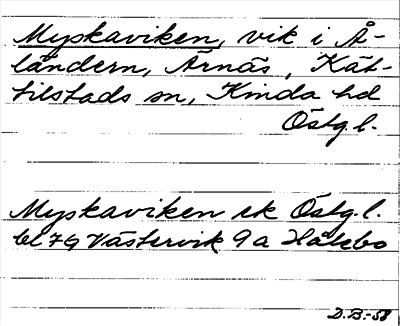 Myskaviken, vik i Å-
ländern, Ärnäs, Kät-
tilstads sn, Kinda hd
Östg.l.
Myskaviken ek Östg.l.
bl 79 Västervik 9a Håkbo
D.B.-58